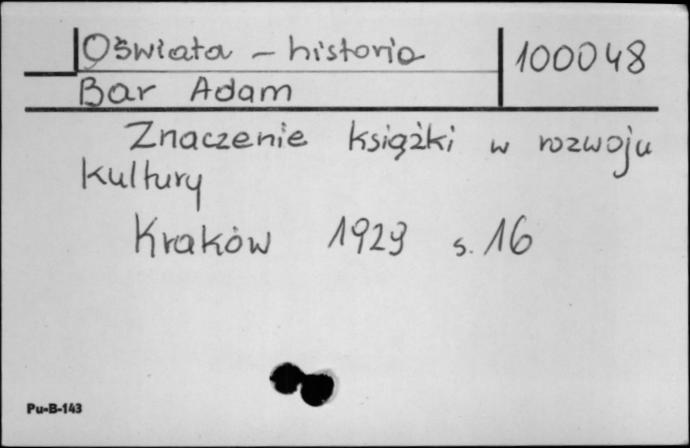 Oświata - historia 100048
Bar Adam
Znaczenie książki w rozwoju
kultury
Kraków 1929 s. 16
Pu-B-143